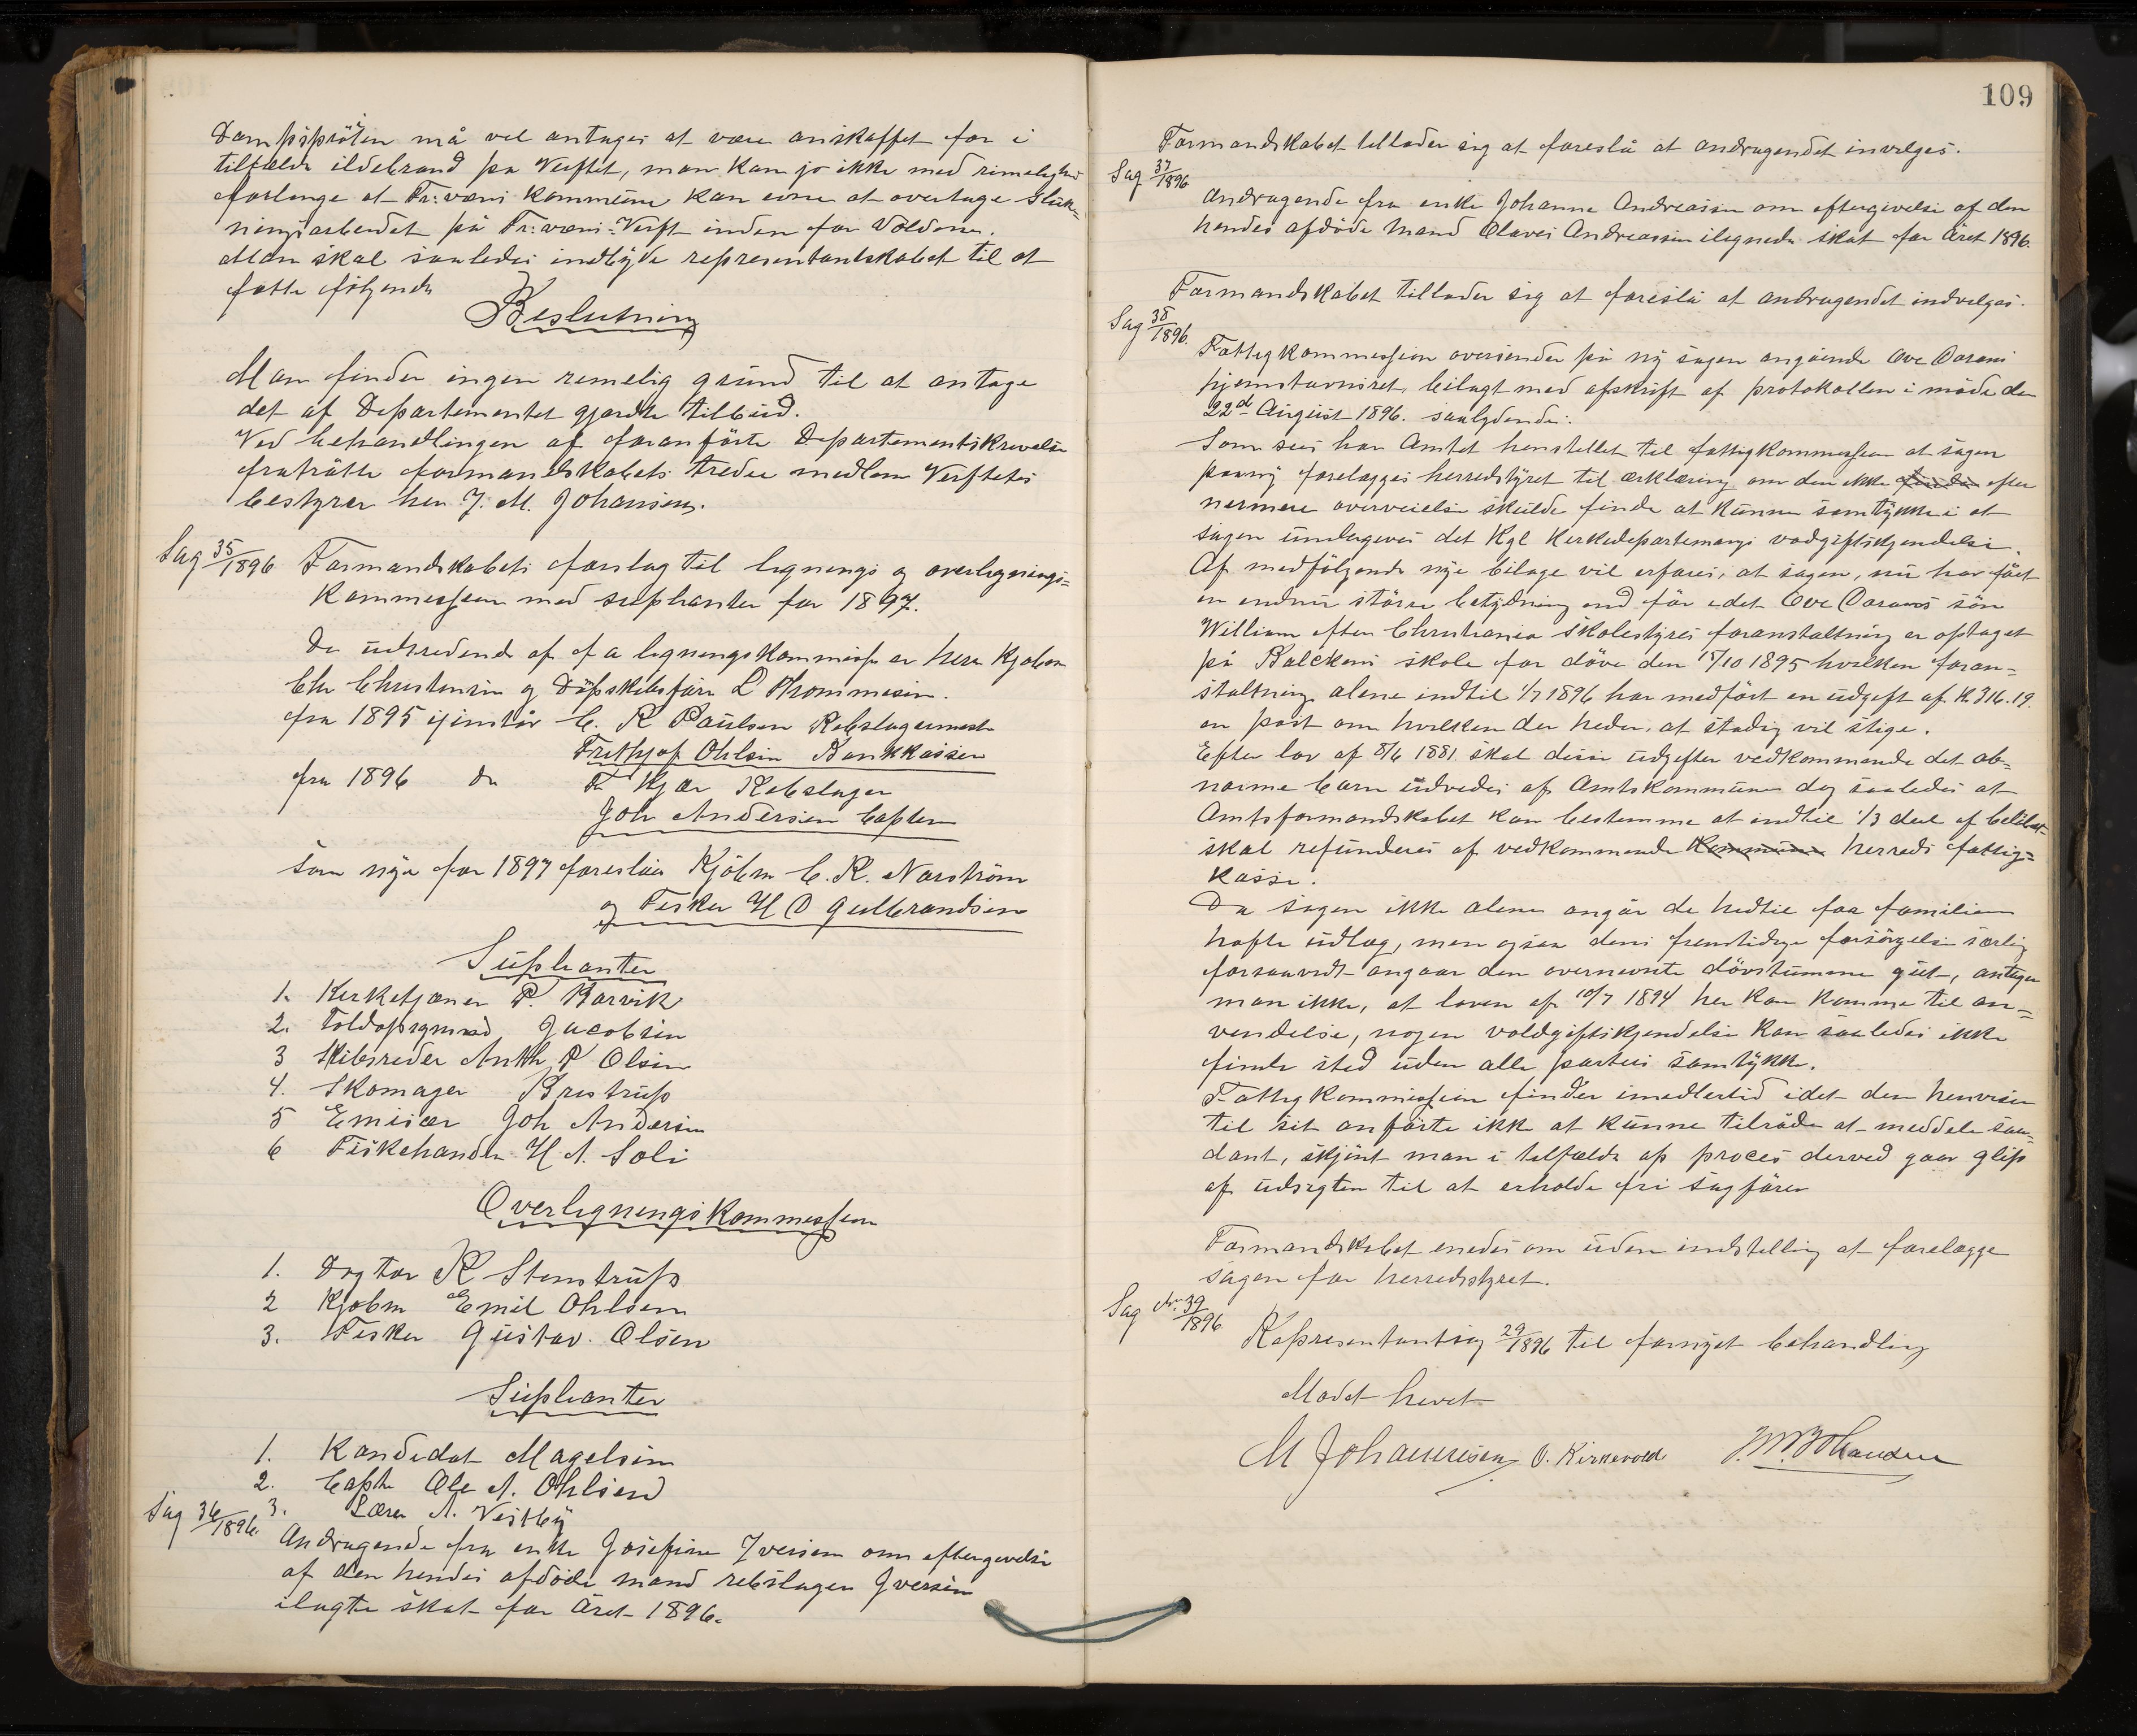 Dampsprøiten må vel antages at være anskaffet for i
tilfælde ildebrand på Verftet, man kan jo ikke med rimelighed
forlange at Fr:væns kommune kan evne at overtage Sluk-
ningsarbeidet på Fr:væns Verft inden for Voldene.
Man skal saaledes indbyde representantskabet til at
fatte følgende
Beslutning
Man finder ingen rimelig grund til at antage
det af Departementet gjordte tilbud.
Ved behandlingen af foranførte Departementskrivelse
fratrådte formandskabets tredie medlem Verftets
bestyrer herr J. M. Johansen.
Sag 35/1896 Formandskabets forslag til lignings og overlignings=
Kommission med suplianter for 1897.
De udtredende af fa ligningskommiss er herr Kjøbm
Chr Christensen og Døpskibsfører L Thommesen.
fra 1895 gjenstår C. R Paulsen Rebslagermester
Frithjof Ohlsen Bankkasser
fra 1896 do Fr Kjær Rebslager
Joh Andersen Captein
som nye for 1897 foreslåes Kjøbm C. R. Norstrøm
og Fisker H O Gulbrandsen
Suplianter
1. Kirketjæner P. Karvik
2. Toldopsynmd Jacobsen
3 Skibsreder Anth P Olsen
4. Skomager Brestrup
5 Emisær Joh Andersen
6 Fiskehandler H A. Soli
Overligningskommission
1. Dogtor R Stenstrup
2 Kjøbm Emil Ohlsen
3. Fisker Gustav. Olsen
Suplianter
1. Kandidat Magelsen
2. Capt Ole A. Ohlsen
3. Lærer A. Vestby
Sag 36/1896. Andragende fra enke Josefine Iversen om eftergivelse
af den hendes afdøde mand rebslager Iversen
ilagte skat for Året 1896.
109
Formandskabet tillader sig at foreslå at andragendet invilges.
Sag 37/1896
Andragende fra enke Johanne Andreassen om eftergivelse af den
hendes afdøde mand Olaves Andreassen ilignede skat for Året 1896.
Formandskabet tillader sig at foreslå at andragendet indvilges.
Sag 38/1896.
Fattigkommission oversender på ny sagen angående Ove Oarans
hjemstavnsret, bilagt med afskrift af protokollen i møde den
22de August 1896. saalydende:
Som sees har Amtet henstillet til fattigkommission at sagen
paany forelægges herredstyret til erklæring om den ikke finder efter
nermere overveielse skulde finde at kunne samtykke i at
sagen undergives det Kgl Kirkedepartemangs voldgiftskjendelse.
Af medfølgende nye bilage vil erfares, at sagen, nu har fået
en endnu større betydning end før idet Ove Oarans søn
William efter Christiania skolestyres foranstaltning er optaget
på Balckens skole for døve den 15/10 1895 hvilken foran=
staltning alene indtil 1/7 1896 har medført en udgift af K. 316.19.
en post om hvilken der heder, at stadig vil stige.
Efter lov af 8/6 1881. skal disse udgifter vedkommende det ab=
norme barn udredes af Amtskommunen dog saaledes at
Amtsformandskabet kan bestemme at indtil 1/3 deel af beløbet
skal refunderes af vedkommende Kommune herreds fattig=
kasse.
Da sagen ikke alene angår de hidtil for familien
hafte udlæg, men også dens fremtidige forsørgelse særlig
forsaavidt angaar den overnevnte døvstumme gut, antager
man ikke, at loven af 10/7 1894 her kan komme til an=
vendelse, nogen voldgiftskjendelse kan saaledes ikke
finde sted uden alle parters samtykke.
Fattigkommission finder imedlertid idet den henviser
til sit anførte ikke at kunne tilråde at meddele saa=
dant, skjønt man i tilfælde af proces derved gaar glip
af udsigten til at erholde fri sagfører
Formandskabet enedes om uden indstilling at forelægge
sagen for herredsstyret.
Sag No 39/1896
Representantsag 29/1896 til fornyet behandling
Mødet hevet
M Johannesen O. Kirkevold J. M. Johansen